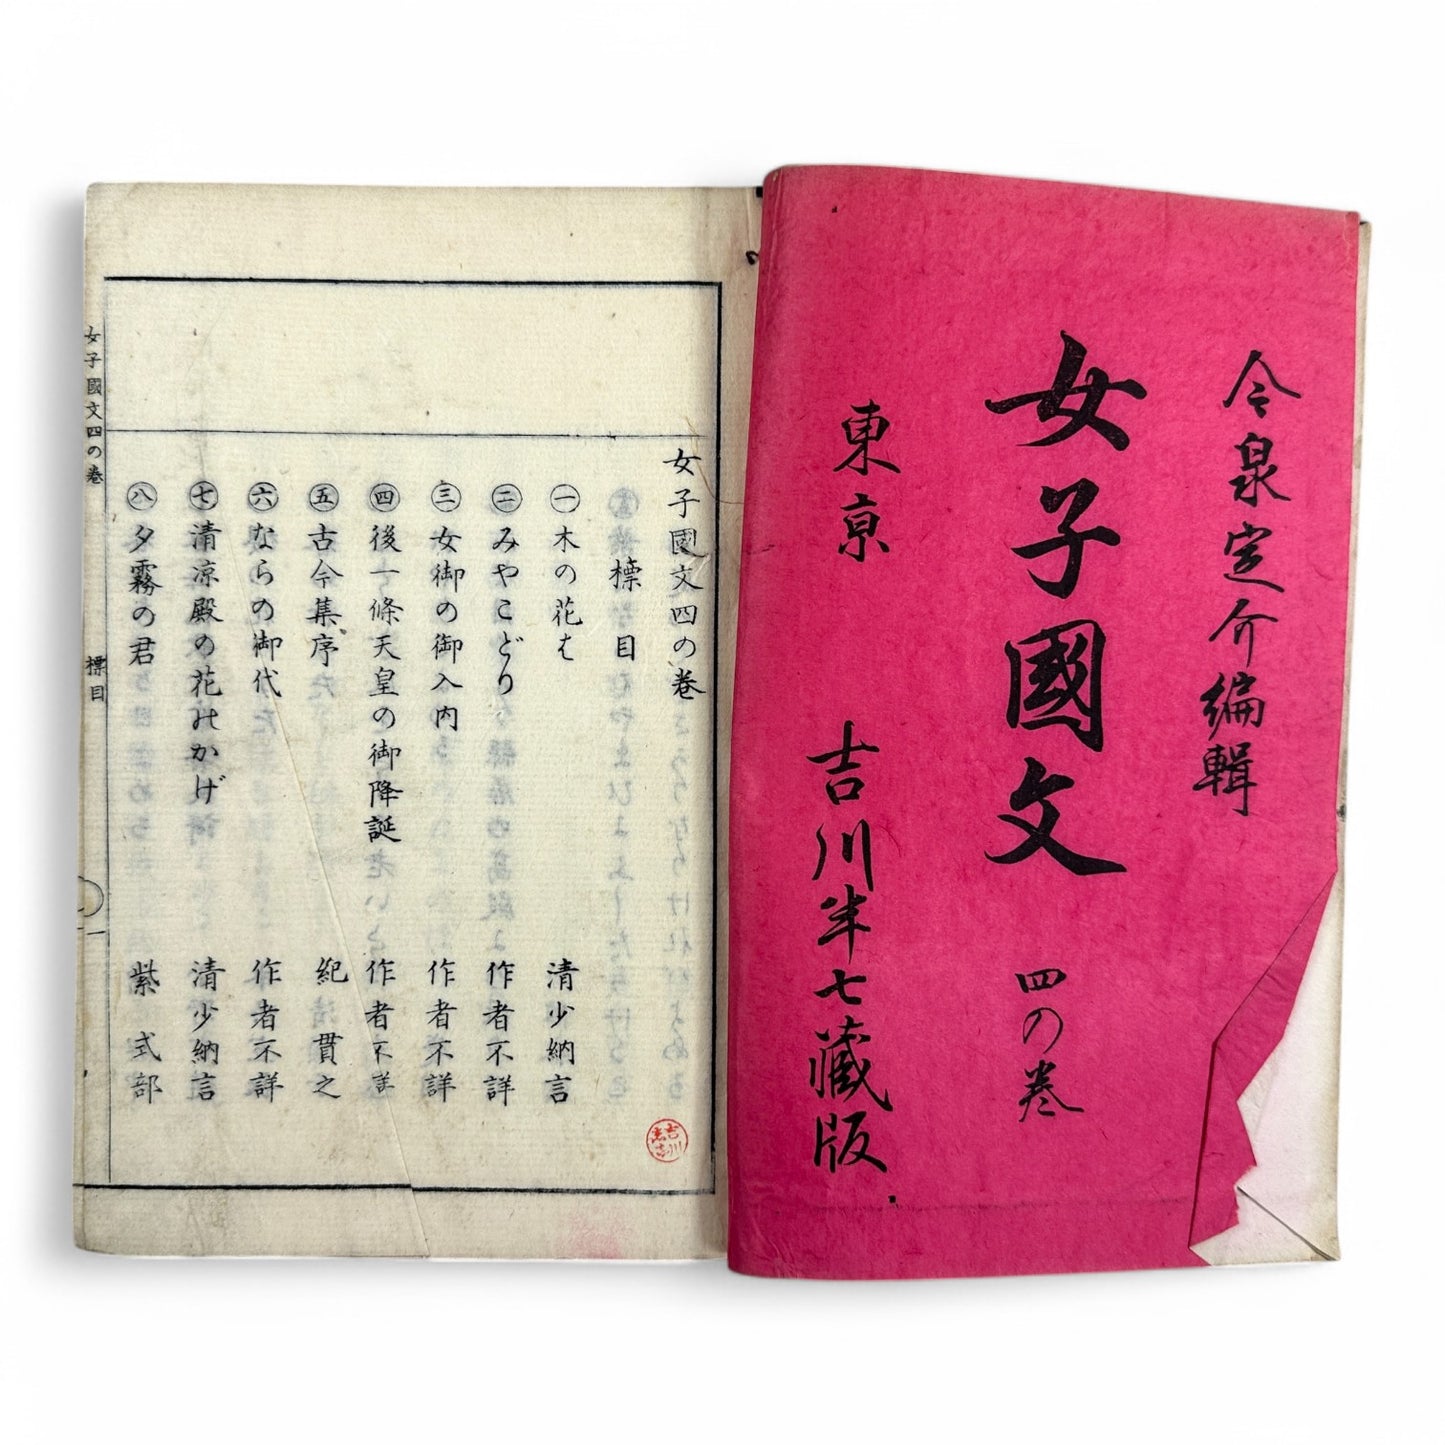 今泉定介編輯
女子國文 四の巻
東京 吉川半七藏版
女子國文四の巻
標目
㊀木の花は 清少納言
㊁みやこどり 作者不詳
㊂女御の御入内 作者不詳
㊃後一條天皇の御降誕 作者不詳
㊄古今集序 紀貫之
㊅ならの御代 作者不詳
㊆清凉殿の花のかげ 清少納言
㊇夕霧の君 紫式部
女子國文四の巻 標目